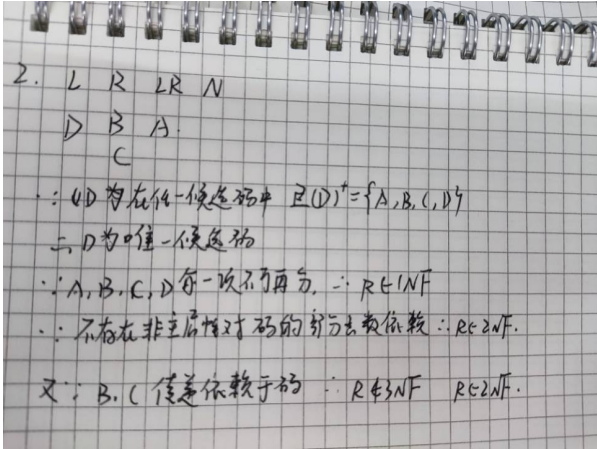 2. L R LR N
D B A.
C
∵ D为在任一候选码中 且(D)⁺={A,B,C,D}
∴ D为唯一候选码
∵ A,B.C,D每一次不可再分. ∴ R∈1NF
∵ 不存在非主属性对码的部分函数依赖 ∴ R∈2NF.
又∵ B.C传递依赖于码 ∴ R∉3NF R∈2NF.